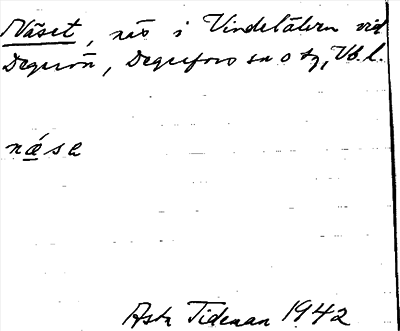 Näset, näs i Vindelälven vid
Degerön, Degerfors sn o tg, Vb. l.
næsɛ
Astr Tideman 1942